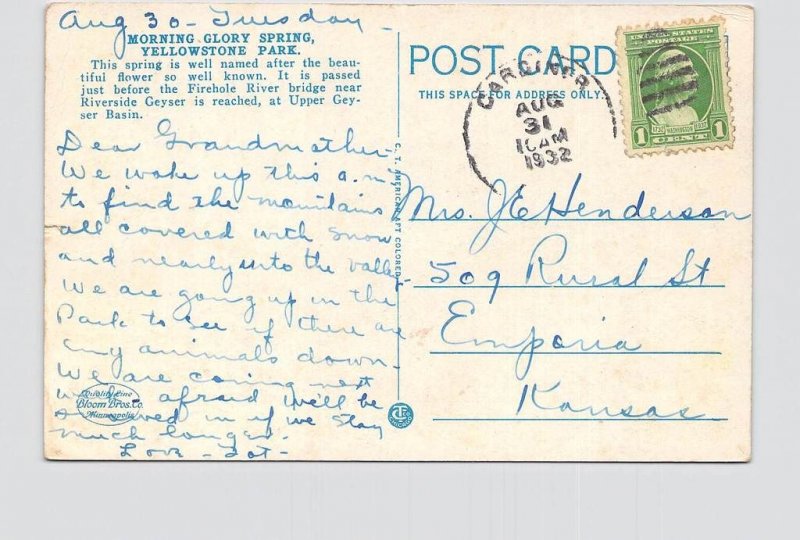 Aug 30 - Tuesday -
MORNING GLORY SPRING,
YELLOWSTONE PARK.
This spring is well named after the beau-
tiful flower so well known. It is passed
just before the Firehole River bridge near
Riverside Geyser is reached, at Upper Gey-
ser Basin.
Dear Grandmother -
We woke up this a.m.
to find the mountains
all covered with snow
and nearly into the valley -
We are going up in the
Park to see if there are
any animals down.
We are coming next
afraid we'll be
snowed in if we stay
much longer.
Love - Dot -
Quality Line
Bloom Bros. Co.
Minneapolis
C. T. AMERICAN ART COLORED
POST CARD
THIS SPACE FOR ADDRESS ONLY
GARDINER
AUG
31
10AM
1932
UNITED STATES
POSTAGE
1732 WASHINGTON 1932
1 CENT 1
Mrs. J E Henderson
509 Rural St
Emporia
Kansas -